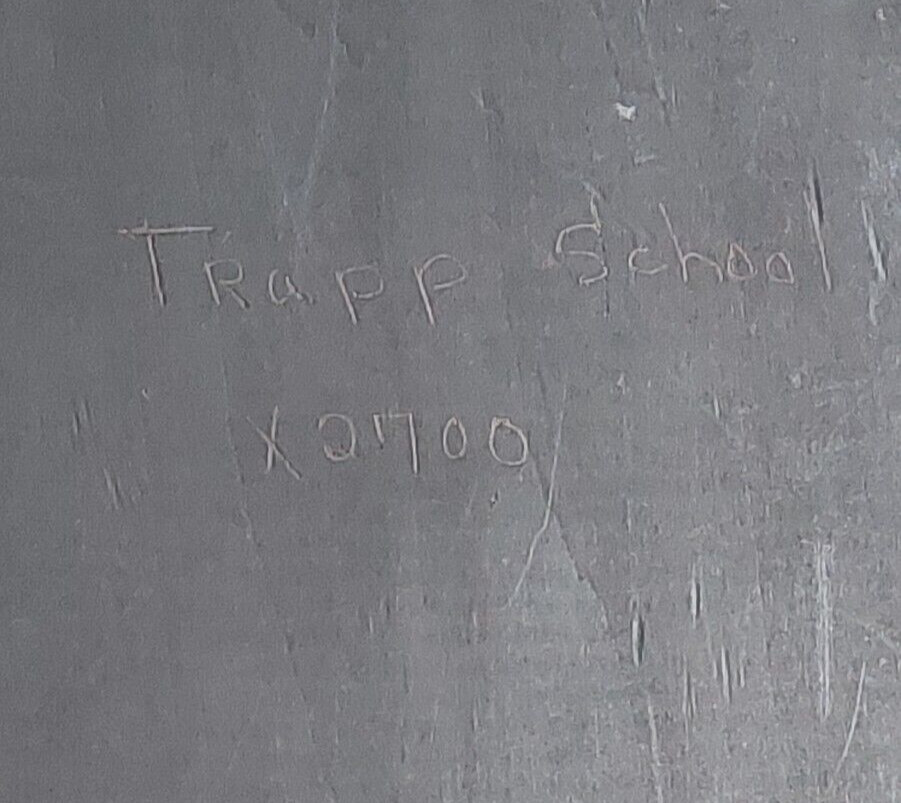 TRapp School
X2700